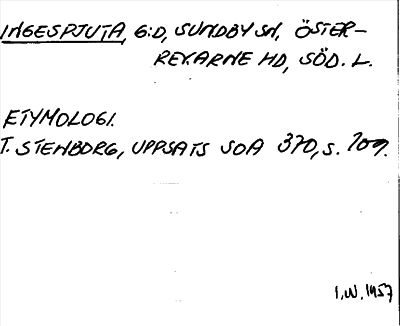 INGESPJUTA, G:D, SUNDBY SN, ÖSTER-
REKARNE HD, SÖD. L.
ETYMOLOGI.
T. STENBORG, UPPSATS SOA 370, S. 109.
I.W. 1957